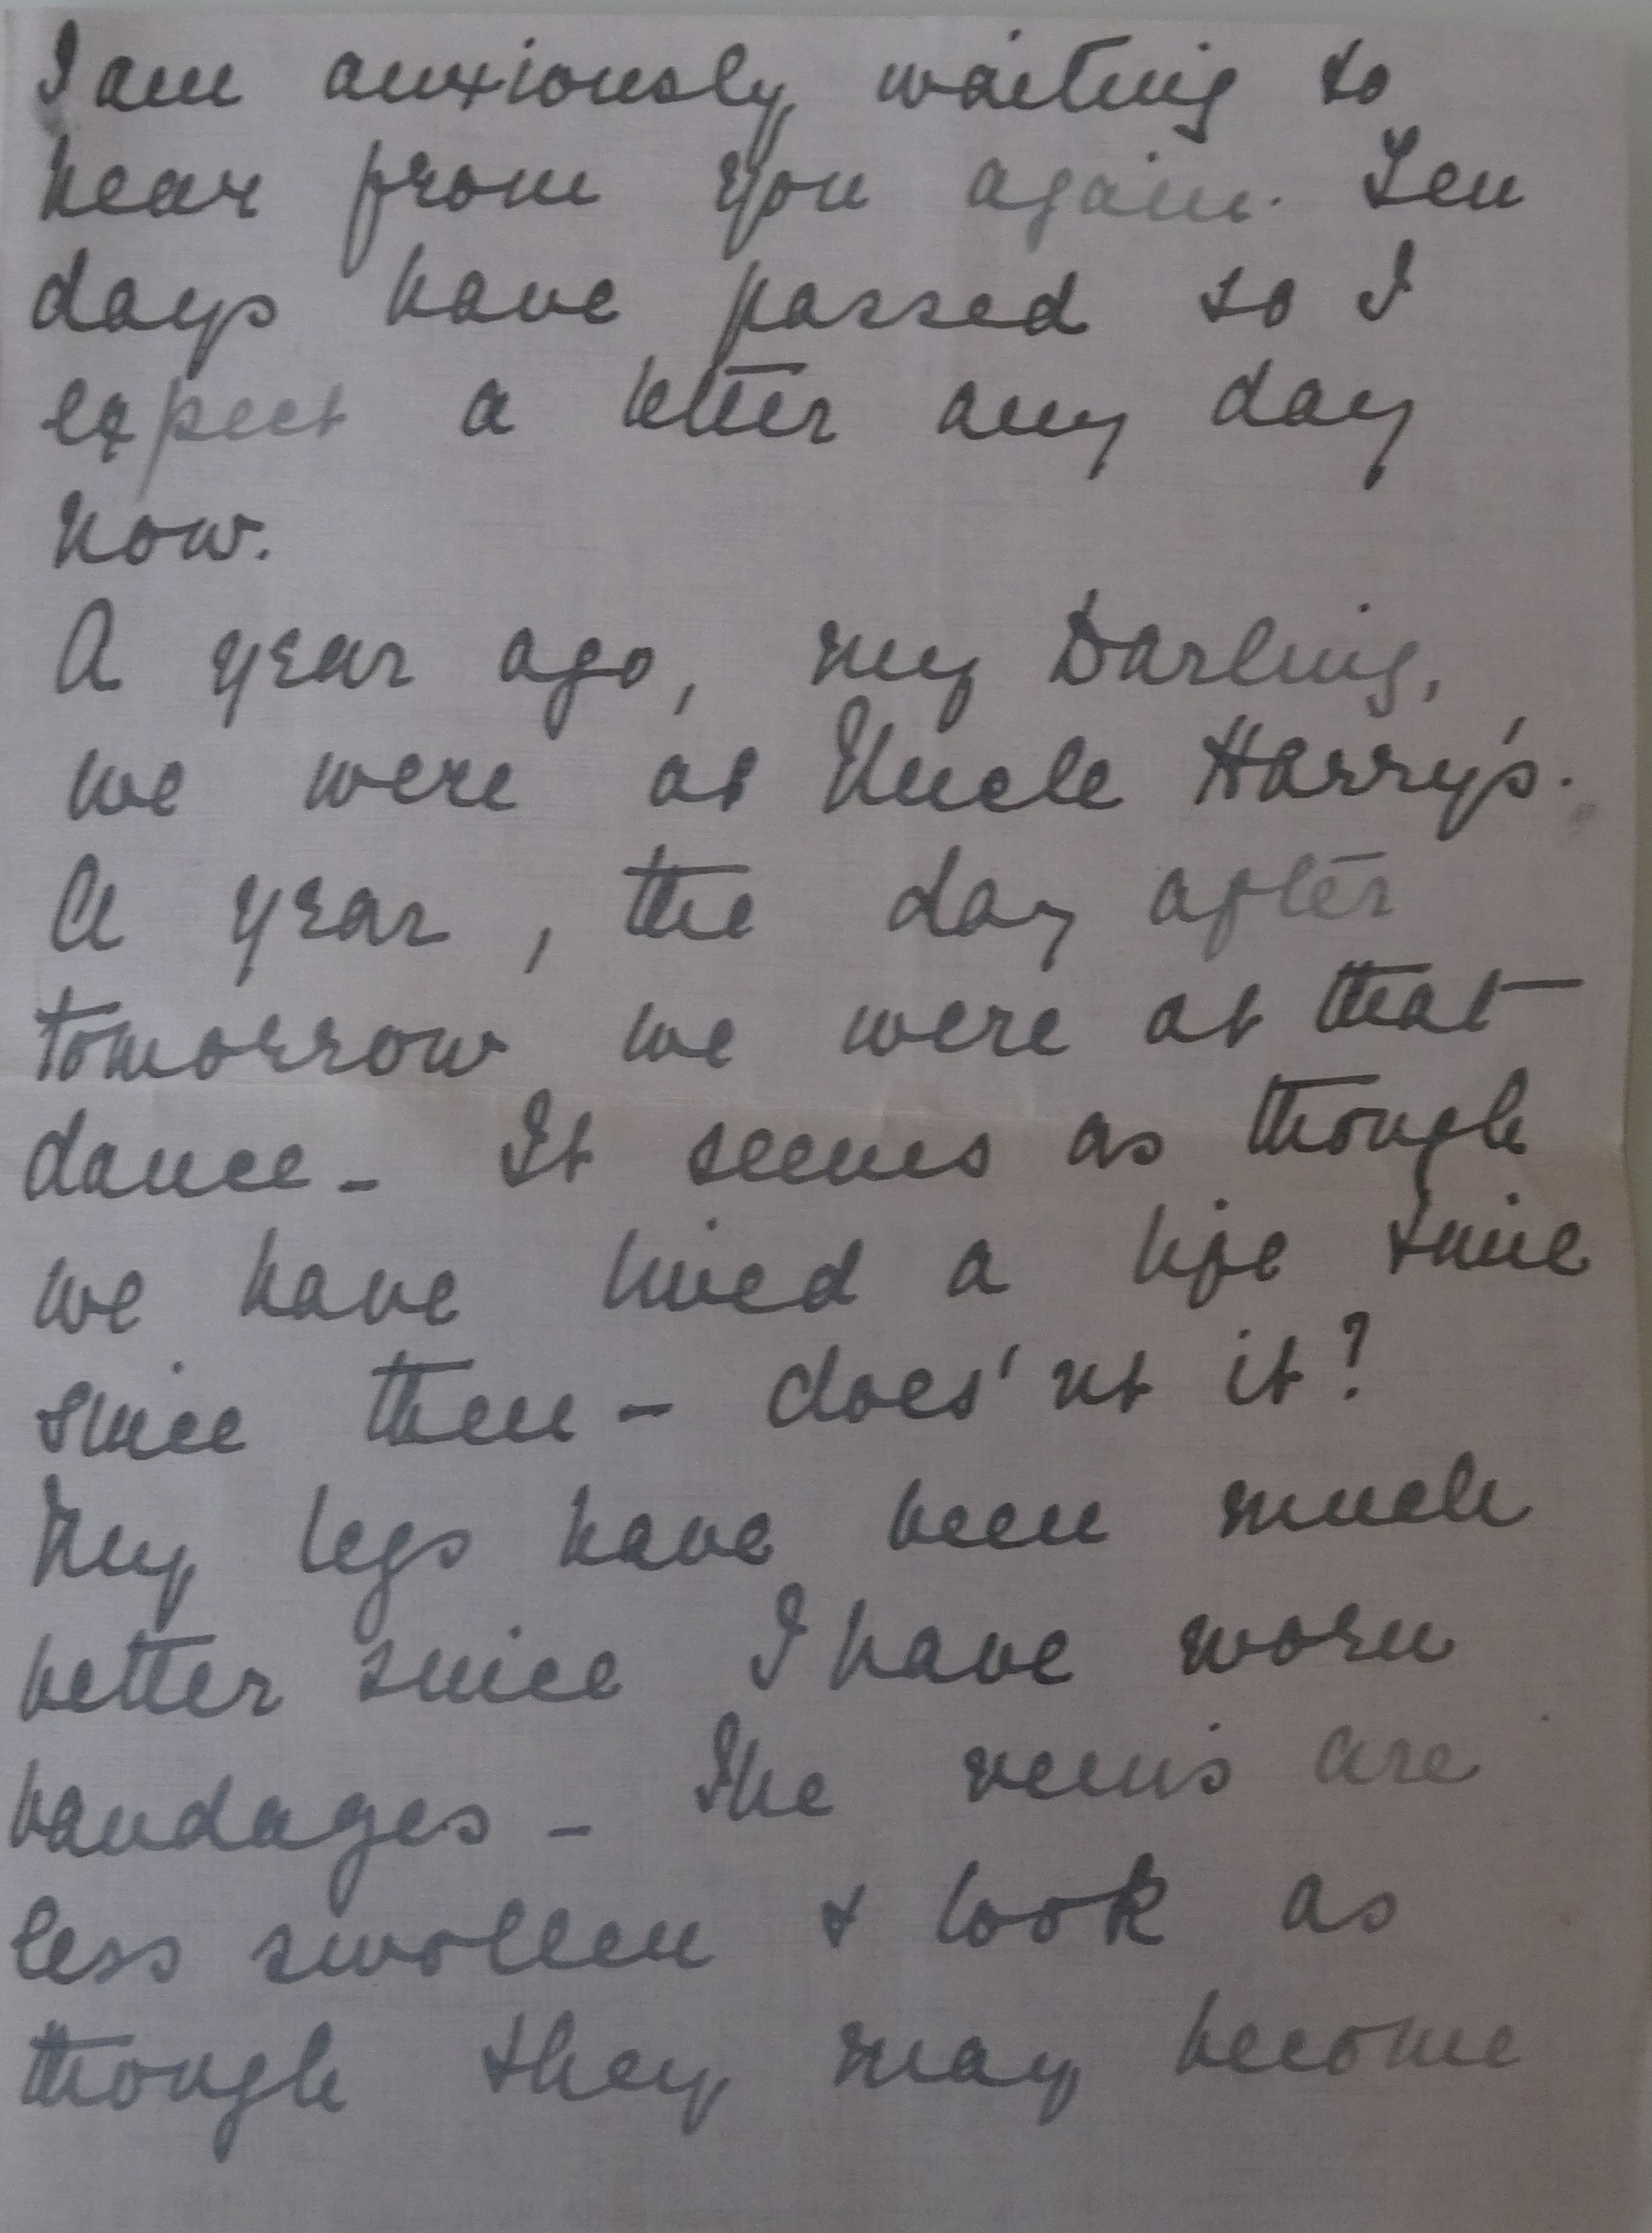 I am anxiously waiting to
hear from you again. Ten
days have passed so I
expect a letter any day
now.
A year ago, my Darling,
we were at Uncle Harry's.
A year, the day after
tomorrow we were at that
dance - It seems as though
we have lived a life time
since then - does'nt it?
My legs have been much
better since I have worn
bandages - The veins are
less swollen & look as
though they may become